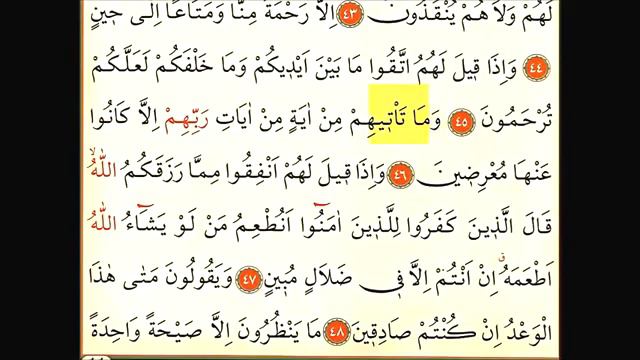 لَهُمْ وَلَا هُمْ يُنْقَذُونَ ﴿٤٣﴾ اِلَّا رَحْمَةً مِنَّا وَمَتَاعًا اِلٰى ح۪ينٍ
﴿٤٤﴾ وَاِذَا ق۪يلَ لَهُمُ اتَّقُوا مَا بَيْنَ اَيْد۪يكُمْ وَمَا خَلْفَكُمْ لَعَلَّكُمْ
تُرْحَمُونَ ﴿٤٥﴾ وَمَا تَأْت۪يهِمْ مِنْ اٰيَةٍ مِنْ اٰيَاتِ رَبِّهِمْ اِلَّا كَانُوا
عَنْهَا مُعْرِض۪ينَ ﴿٤٦﴾ وَاِذَا ق۪يلَ لَهُمْ اَنْفِقُوا مِمَّا رَزَقَكُمُ اللّٰهُۙ
قَالَ الَّذ۪ينَ كَفَرُوا لِلَّذ۪ينَ اٰمَنُٓوا اَنُطْعِمُ مَنْ لَوْ يَشَٓاءُ اللّٰهُ
اَطْعَمَهُۗ اِنْ اَنْتُمْ اِلَّا ف۪ي ضَلَالٍ مُب۪ينٍ ﴿٤٧﴾ وَيَقُولُونَ مَتٰى هٰذَا
الْوَعْدُ اِنْ كُنْتُمْ صَادِق۪ينَ ﴿٤٨﴾ مَا يَنْظُرُونَ اِلَّا صَيْحَةً وَاحِدَةً